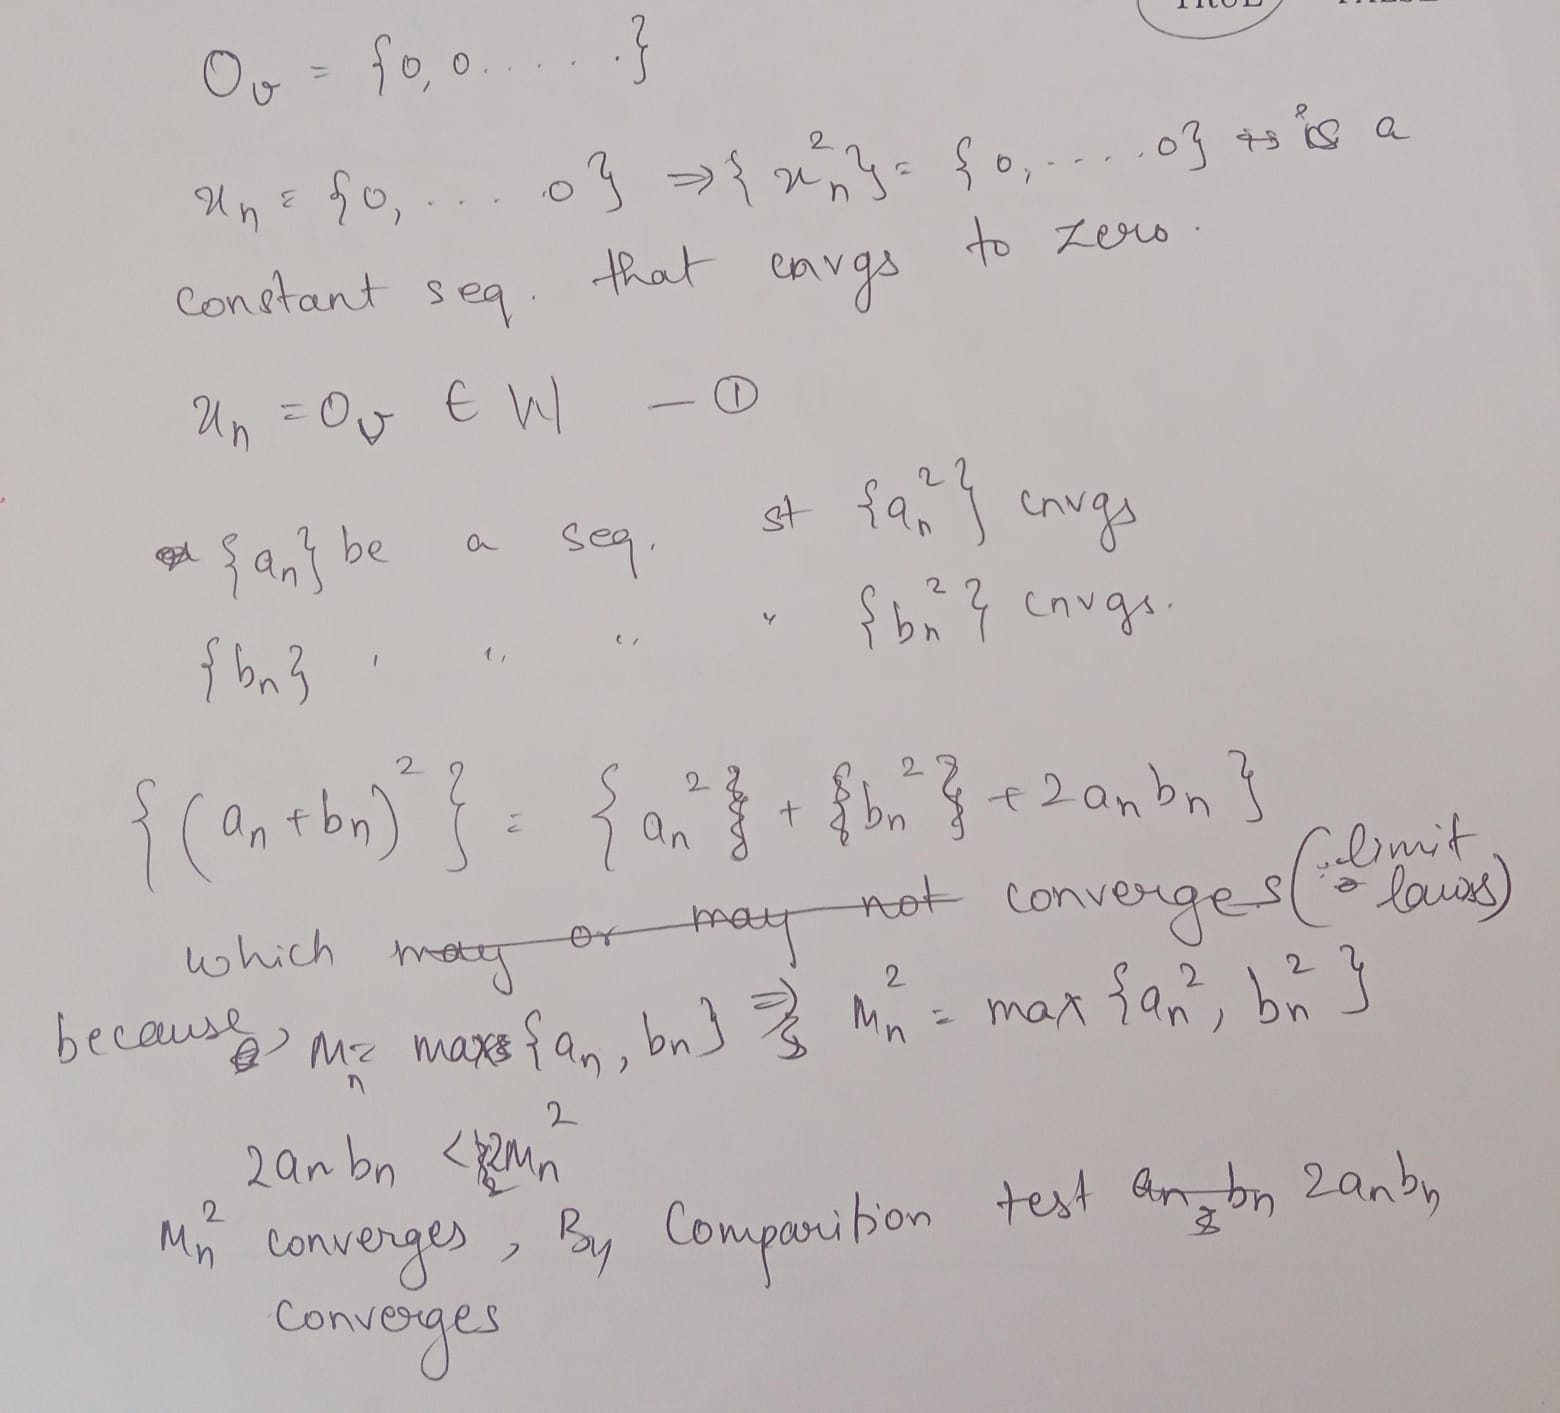 TRUE FALSE
O_v = {0, 0 ......}
x_n = {0, .... 0} ⇒ {x_n^2} = {0, ..... 0} is a
constant seq. that cnvgs to zero.
x_n = O_v ∈ W — ①
{a_n} be a seq. st {a_n^2} cnvgs
{b_n} " " " " {b_n^2} cnvgs.
{(a_n + b_n)^2} = {a_n^2 + b_n^2 + 2a_n b_n}
which may or may not converges (∵ limit laws)
because, M_n = max {a_n, b_n} ⇒ M_n^2 = max {a_n^2, b_n^2}
2a_n b_n < 2M_n^2
M_n^2 converges, By Comparition test a_n b_n 2a_n b_n
converges